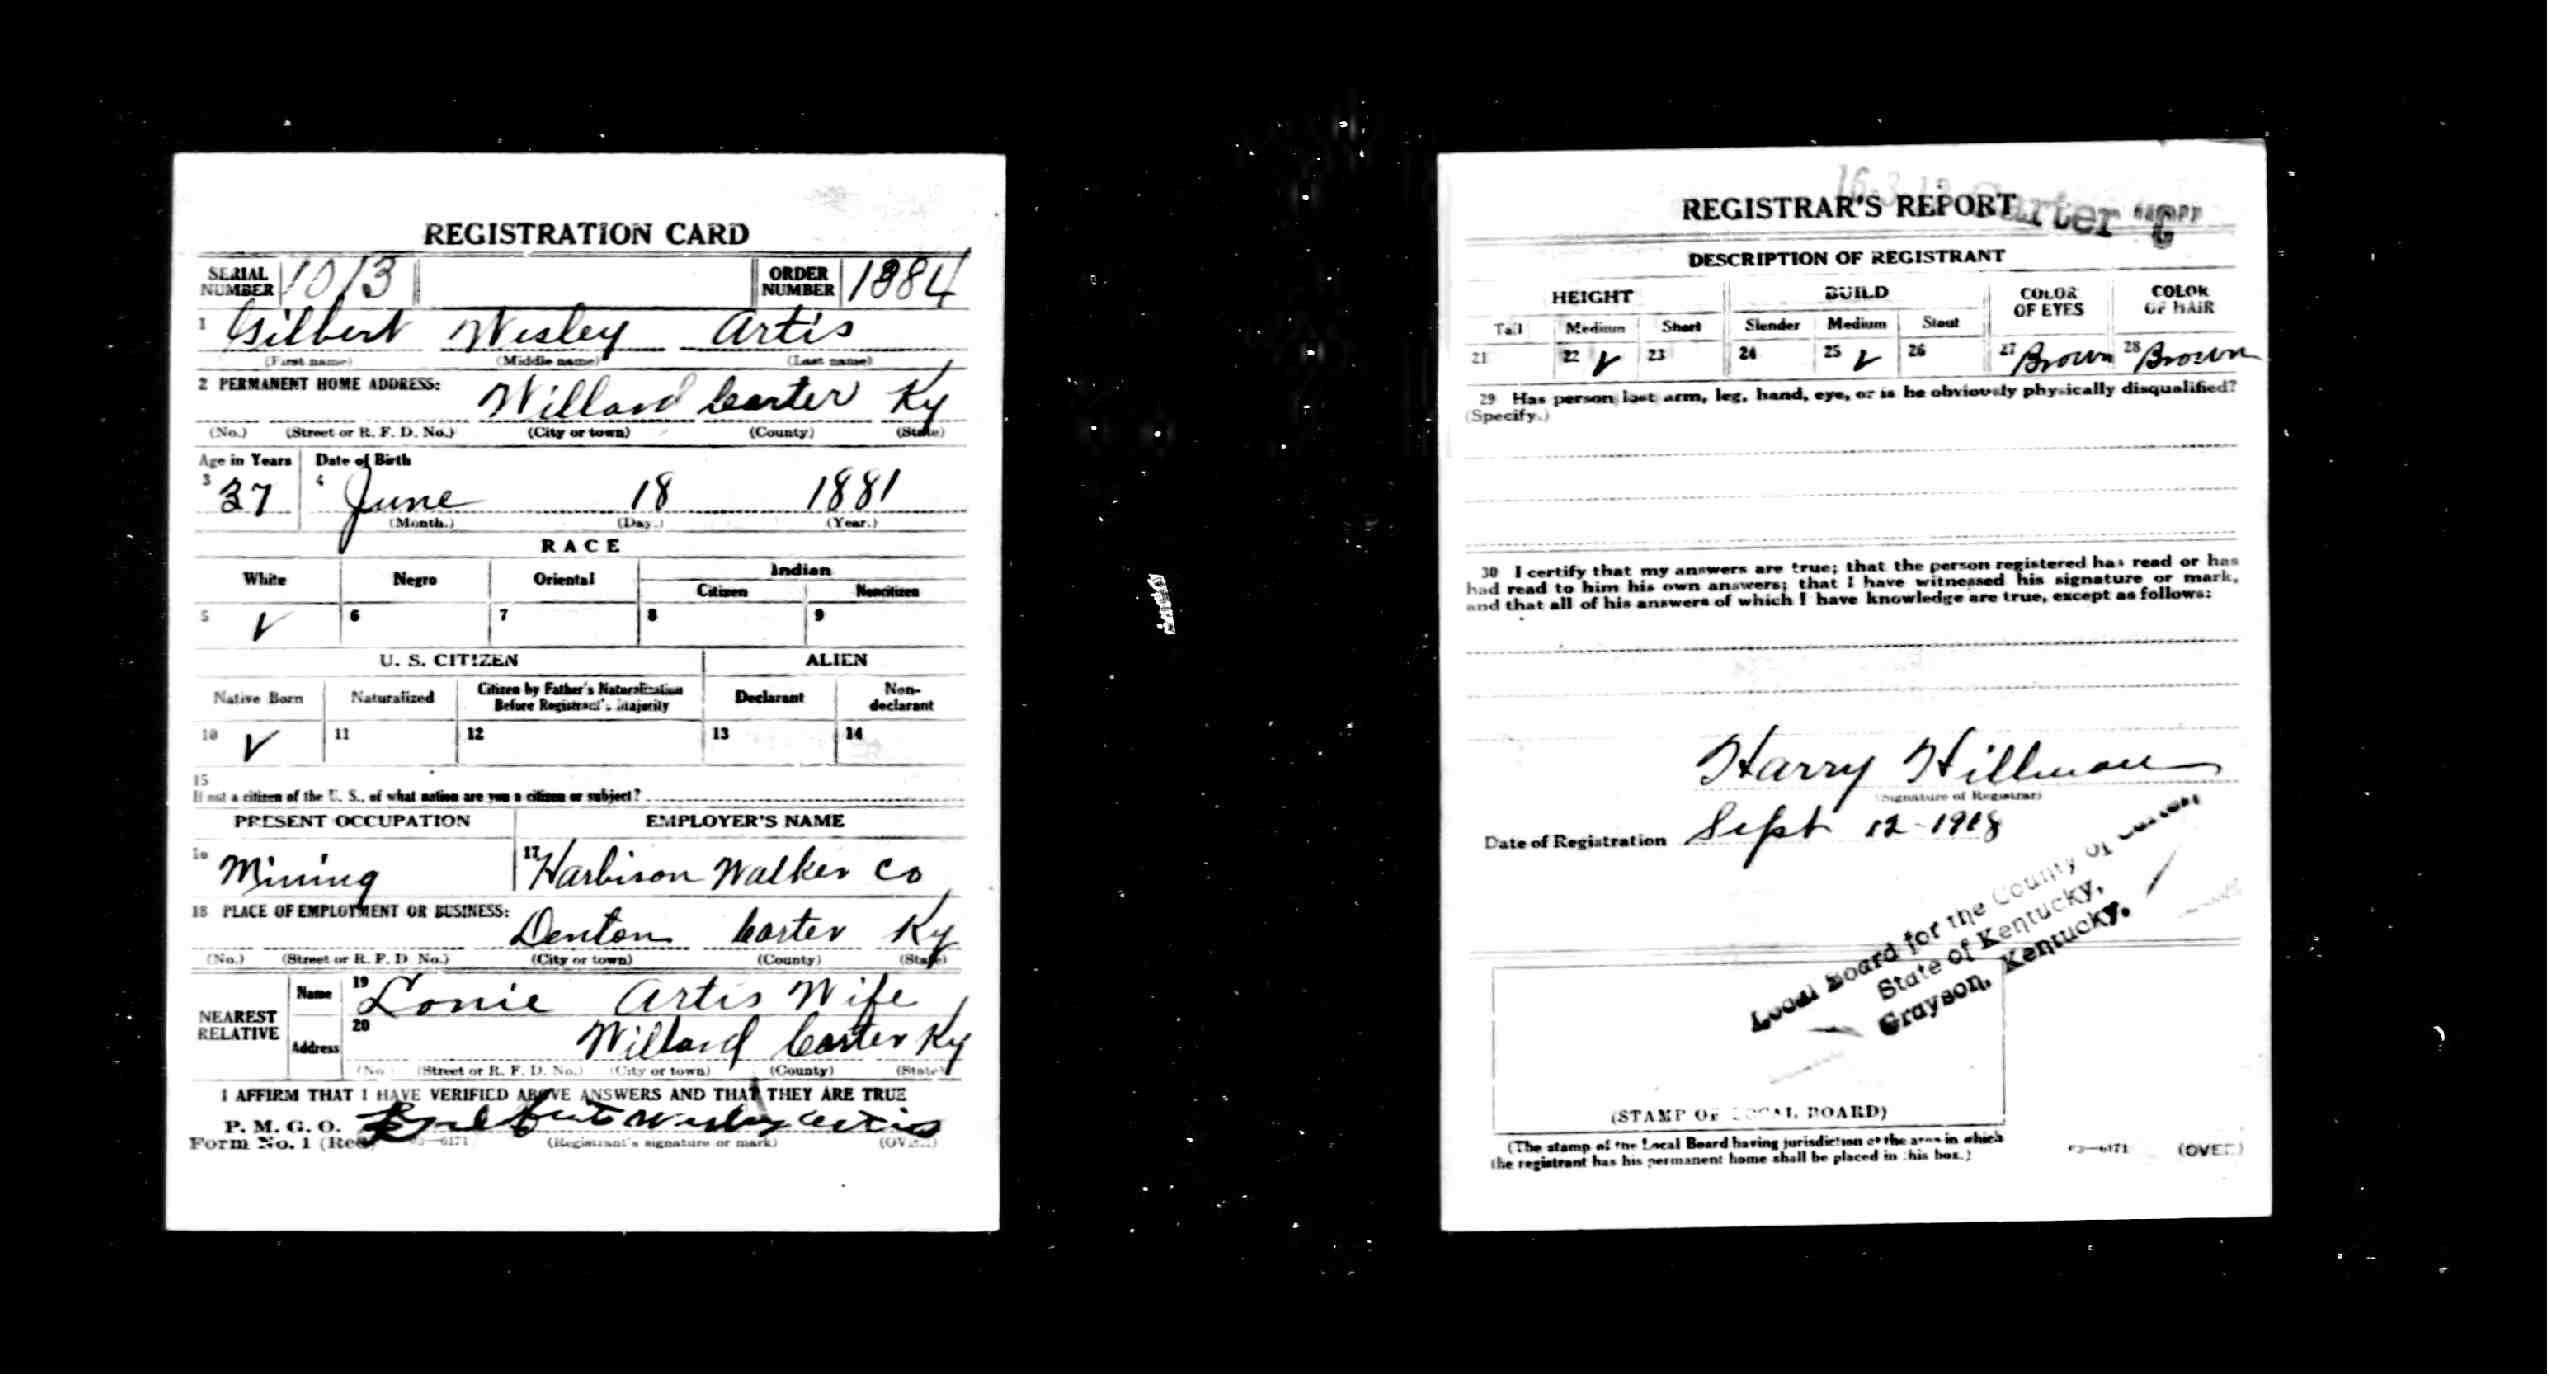 REGISTRATION CARD
SERIAL NUMBER 1013 ORDER NUMBER 1884
1 Gilbert Wesley Artis
(First name) (Middle name) (Last name)
2 PERMANENT HOME ADDRESS: Willard Carter Ky
(No.) (Street or R. F. D. No.) (City or town) (County) (State)
Age in Years Date of Birth
3 37 4 June 18 1881
(Month.) (Day.) (Year.)
RACE
White Negro Oriental Indian
Citizen Noncitizen
5 ✓ 6 7 8 9
U. S. CITIZEN ALIEN
Native Born Naturalized Citizen by Father's Naturalization Before Registrant's Majority Declarant Non-declarant
10 ✓ 11 12 13 14
15
If not a citizen of the U. S., of what nation are you a citizen or subject?
PRESENT OCCUPATION EMPLOYER'S NAME
16 Mining 17 Harbison Walker Co
18 PLACE OF EMPLOYMENT OR BUSINESS:
Denton Carter Ky
(No.) (Street or R. F. D. No.) (City or town) (County) (State)
NEAREST RELATIVE Name 19 Lonie Artis Wife
Address 20 Willard Carter Ky
(No.) (Street or R. F. D. No.) (City or town) (County) (State)
I AFFIRM THAT I HAVE VERIFIED ABOVE ANSWERS AND THAT THEY ARE TRUE
P. M. G. O.
Form No. 1 (Red) Gilbert Wesley Artis
(Registrant's signature or mark) (OVER)
REGISTRAR'S REPORT
DESCRIPTION OF REGISTRANT
HEIGHT BUILD COLOR OF EYES COLOR OF HAIR
Tall Medium Short Slender Medium Stout
21 22 ✓ 23 24 25 ✓ 26 27 Brown 28 Brown
29 Has person lost arm, leg, hand, eye, or is he obviously physically disqualified?
(Specify.)
30 I certify that my answers are true; that the person registered has read or has
had read to him his own answers; that I have witnessed his signature or mark,
and that all of his answers of which I have knowledge are true, except as follows:
Harry Hillman
(Signature of Registrar)
Date of Registration Sept 12-1918
Local Board for the County of Carter
State of Kentucky,
Grayson, Kentucky.
(STAMP OF LOCAL BOARD)
(The stamp of the Local Board having jurisdiction of the area in which
the registrant has his permanent home shall be placed in this box.)
03—6171 (OVER)